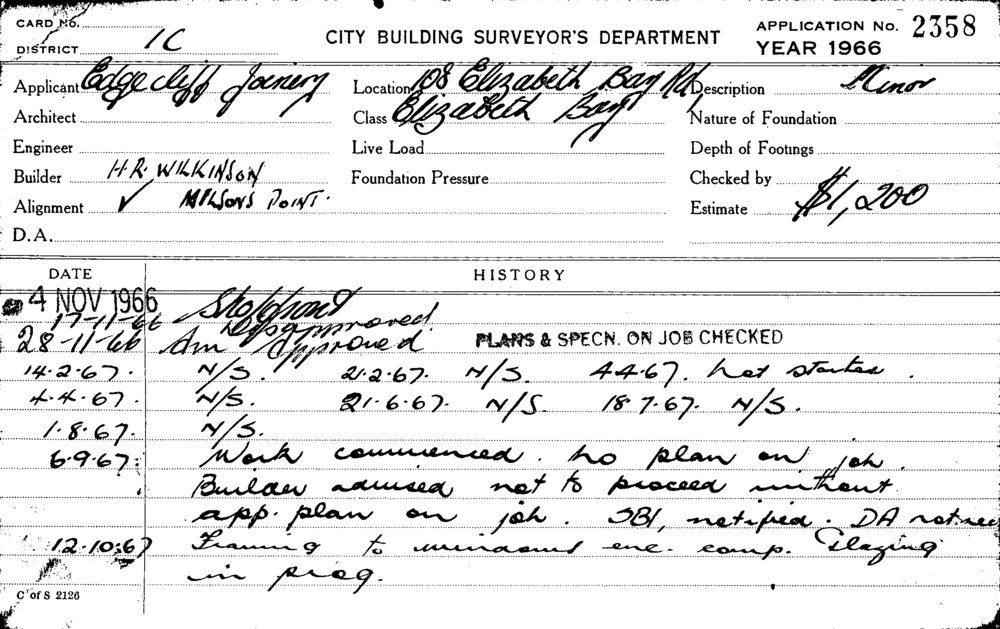 CARD No.
DISTRICT 1C
CITY BUILDING SURVEYOR'S DEPARTMENT
APPLICATION No. 2358
YEAR 1966
Applicant Edgecliff Joinery
Location 108 Elizabeth Bay Rd,
Description Minor
Architect
Class Elizabeth Bay
Nature of Foundation
Engineer
Live Load
Depth of Footings
Builder H.R. WILKINSON
Foundation Pressure
Checked by
Alignment ✓ MILSONS POINT.
Estimate $1,200
D.A.
DATE HISTORY
4 NOV 1966 Shopfront
17-11-66 Disapproved.
28-11-66 Am Approved PLANS & SPECN. ON JOB CHECKED
14.2.67. N/S. 21.2.67. N/S. 4.4.67. Not started.
4.4.67. N/S. 21.6.67. N/S. 18.7.67. N/S.
1.8.67. N/S.
6.9.67: Work commenced. No plan on job.
Builder advised not to proceed without
app. plan on job. SBI, notified. DA not nec
12.10.67 Framing to windows enc. comp. Glazing
in prog.
C of S 2126